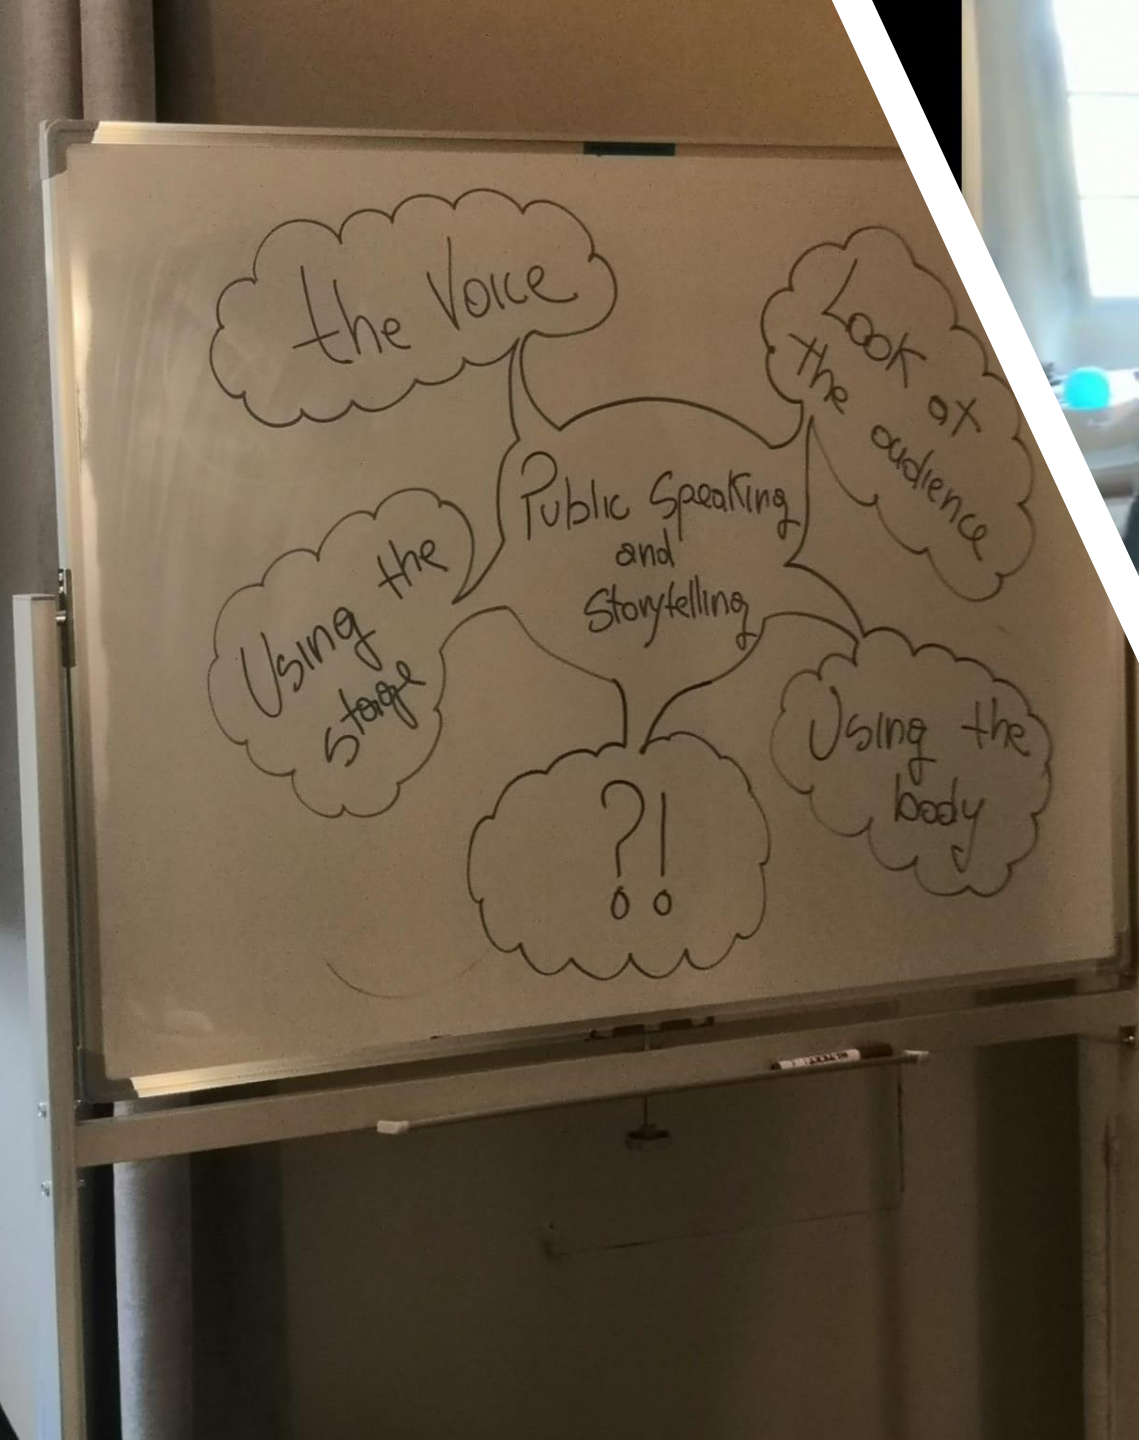 the Voice
Look at
the audience
Public Speaking
and
Storytelling
Using the
stage
Using the
body
?!